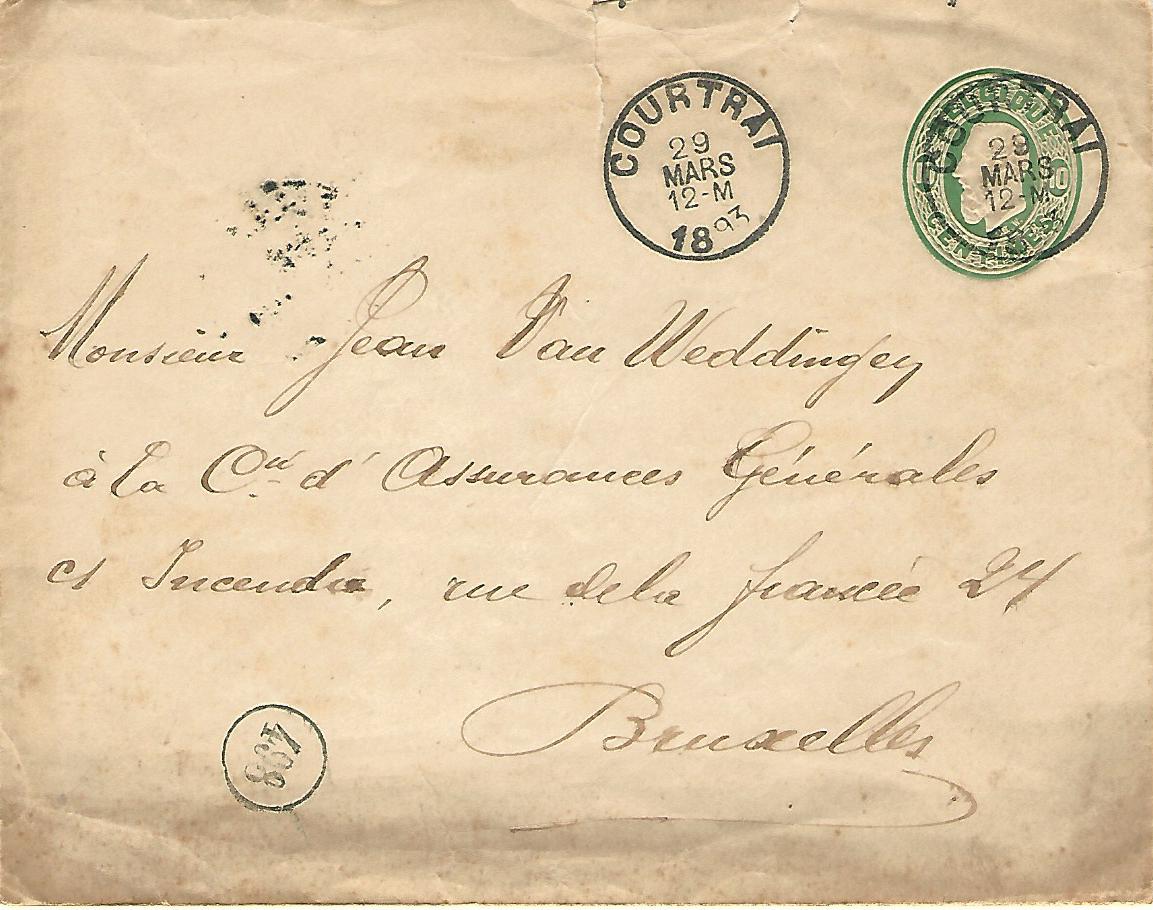 COURTRAI
29
MARS
12-M
1893
BELGIQUE
10
CENTIMES
COURTRAI
29
MARS
12-M
Monsieur Jean Van Weddingen
à la Cie d'Assurances Générales
cs Incendie, rue de la fiancée 24
Bruxelles